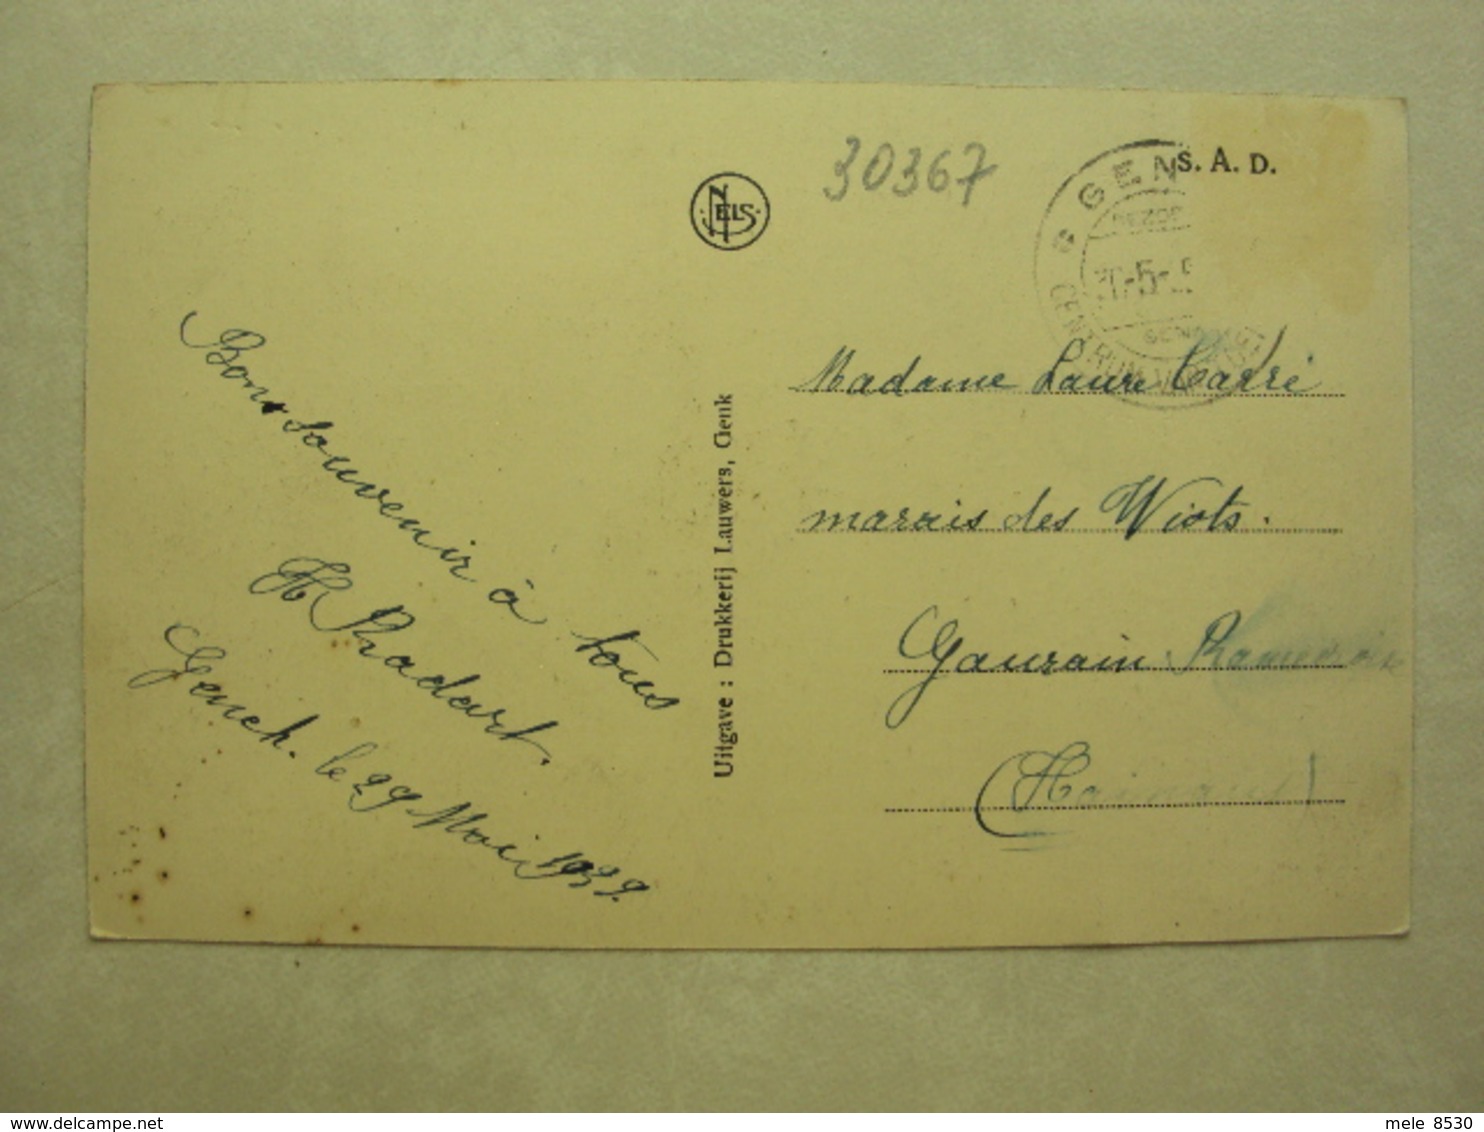 30367
S. A. D.
NELS
GEN
BEZOE
-5-
GEN
CENTRUM
Bon souvenir à tous
H Radart.
Genck. le 29 Mai 1939.
Uitgave : Drukkerij Lauwers, Genk
Madame Laure Carré
marais des Wiots.
Gaurain Ramecroix
(Hainaut)
www.delcampe.net
mele 8530